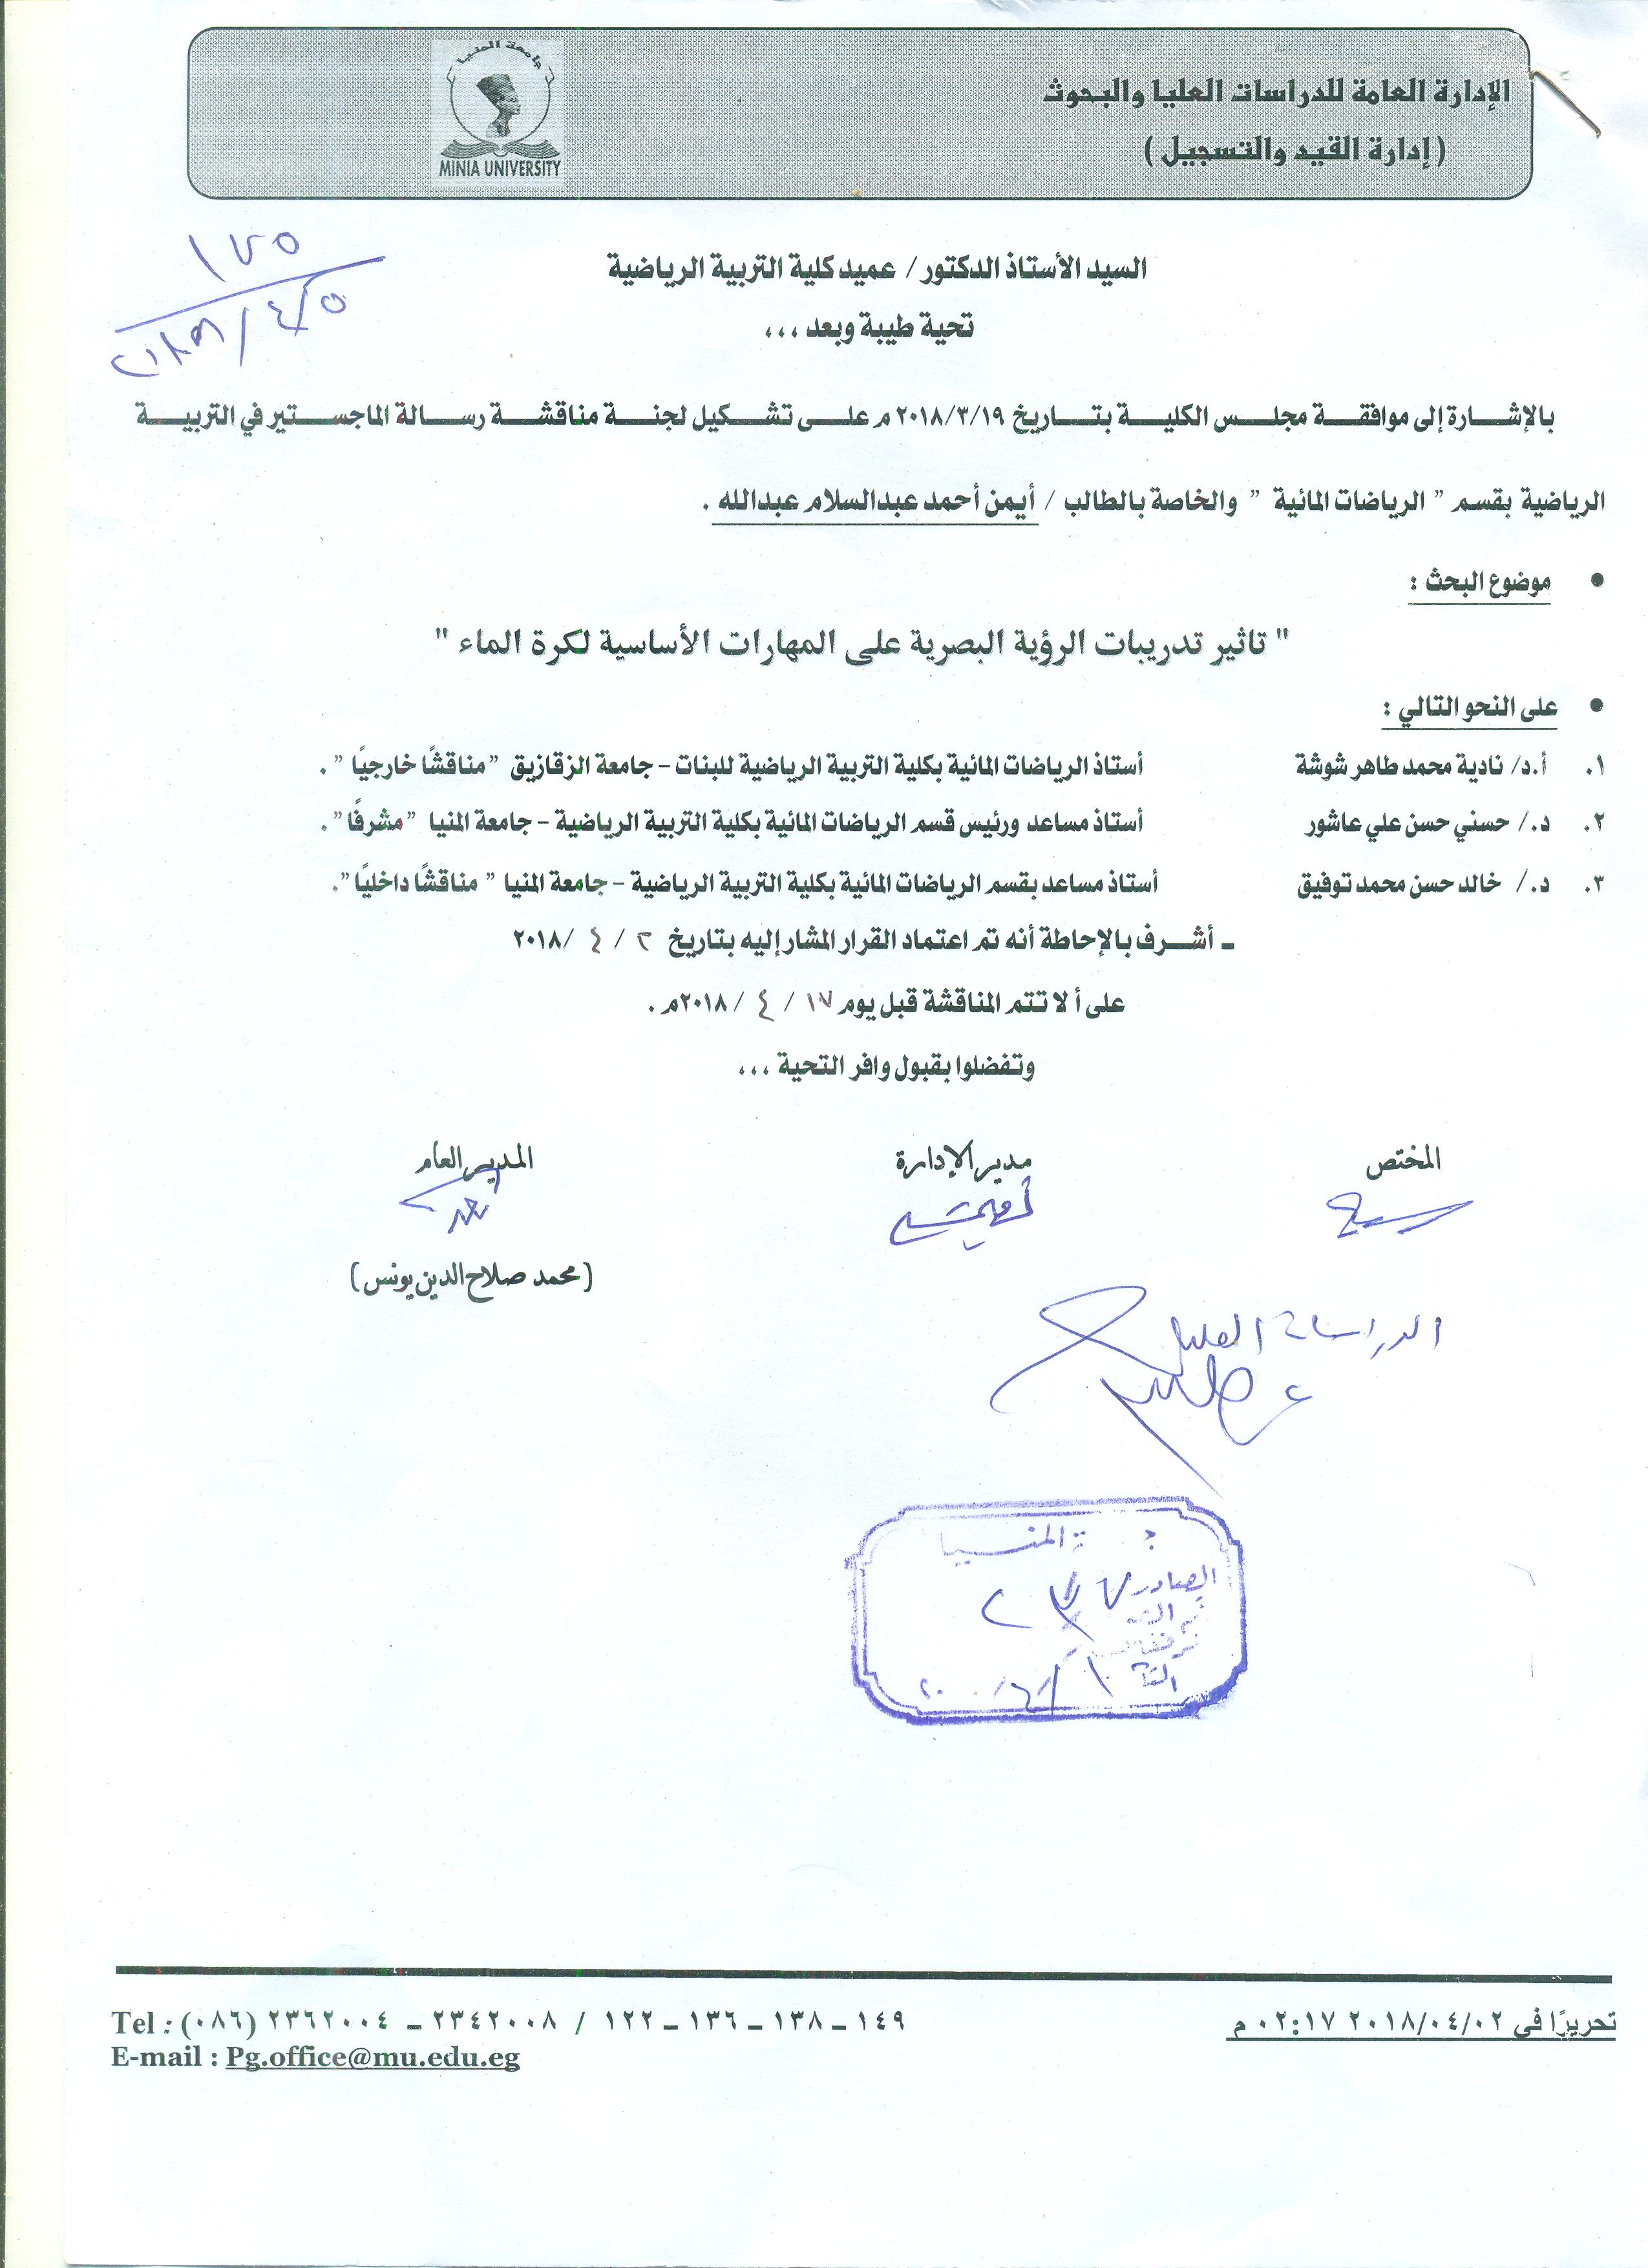 الإدارة العامة للدراسات العليا والبحوث
( إدارة القيد والتسجيل )
جامعة المنيا
MINIA UNIVERSITY
١٧٥
٢٠١٨/٤/٥
السيد الأستاذ الدكتور/ عميد كلية التربية الرياضية
تحية طيبة وبعد ،،،
بالإشارة إلى موافقة مجلس الكلية بتاريخ ٢٠١٨/٣/١٩ م على تشكيل لجنة مناقشة رسالة الماجستير في التربية
الرياضية بقسم " الرياضات المائية " والخاصة بالطالب / أيمن أحمد عبدالسلام عبدالله .
• موضوع البحث :
" تاثير تدريبات الرؤية البصرية على المهارات الأساسية لكرة الماء "
• على النحو التالي :
١. أ.د/ نادية محمد طاهر شوشة أستاذ الرياضات المائية بكلية التربية الرياضية للبنات – جامعة الزقازيق " مناقشًا خارجيًا " .
٢. د./ حسني حسن علي عاشور أستاذ مساعد ورئيس قسم الرياضات المائية بكلية التربية الرياضية – جامعة المنيا " مشرفًا " .
٣. د./ خالد حسن محمد توفيق أستاذ مساعد بقسم الرياضات المائية بكلية التربية الرياضية – جامعة المنيا " مناقشًا داخليًا ".
ـ أشرف بالإحاطة أنه تم اعتماد القرار المشار إليه بتاريخ ٢ / ٤ /٢٠١٨
على ألا تتم المناقشة قبل يوم ١٧ / ٤ / ٢٠١٨م .
وتفضلوا بقبول وافر التحية ،،،
المختص مدير الإدارة المدير العام
(محمد صلاح الدين يونس)
الدراسات العليا
المنيا
الصادر ٢٣٧
تحريرًا في ٢٠١٨/٠٤/٠٢ ٠٢:١٧ م
Tel : (٠٨٦) ٢٣٦٢٠٠٤ ـ ٢٣٤٢٠٠٨ / ١٢٢ ـ ١٣٦ ـ ١٣٨ ـ ١٤٩
E-mail : Pg.office@mu.edu.eg